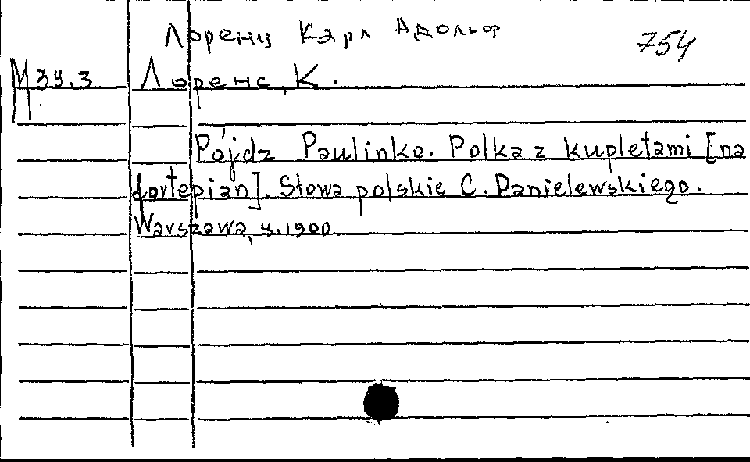 Лоренц Карл Адольф
754
М 39.3 Лоренс, К.
Pójdz Paulinko. Polka z kupletami [na
fortepian]. Słowa polskie C. Danielewskiego.
Warszawa, ц.1900.